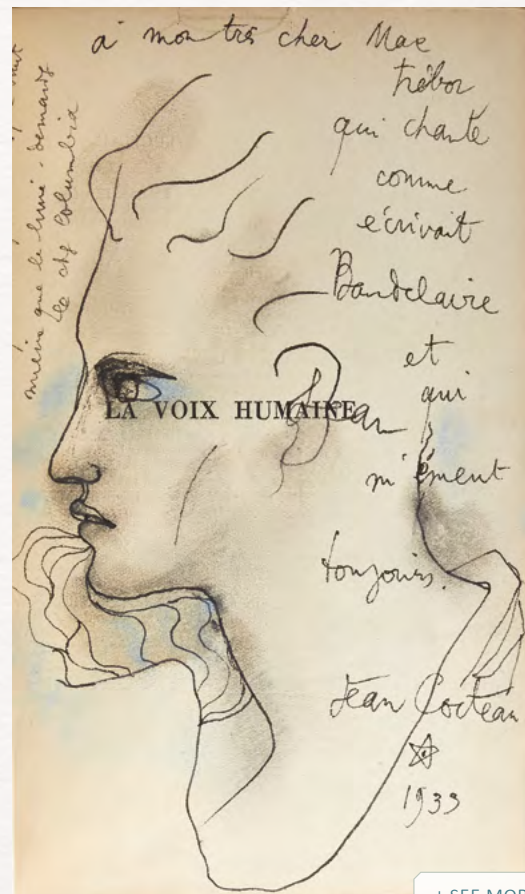 à mon très cher Max
trébor
qui chante
comme
écrivait
Baudelaire
et
qui
m'émeut
toujours.
Jean Cocteau
1933
LA VOIX HUMAINE
Jean
mieux que demande
Columbia
+ SEE MOR